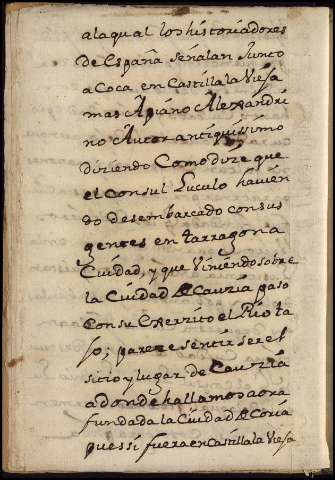 alaqual los historiadores
de España señalan Junto
a Coca en Castilla la Viesa
mas Apiano Alexandri
no Autor antiquissimo
diziendo Como dize que
el Consul Luculo havien
do desembarcado con sus
gentes en tarragona
Ciudad, y que Viniendo sobre
la Ciudad de Cauzia paso
con su Exerzito el Rio ta
jo; pareze sentir ser el
sitio y lugar de Cauzia
adonde hallamos aora
fundada la Ciudad de Coria
pues si fuera en Castilla la Viesa